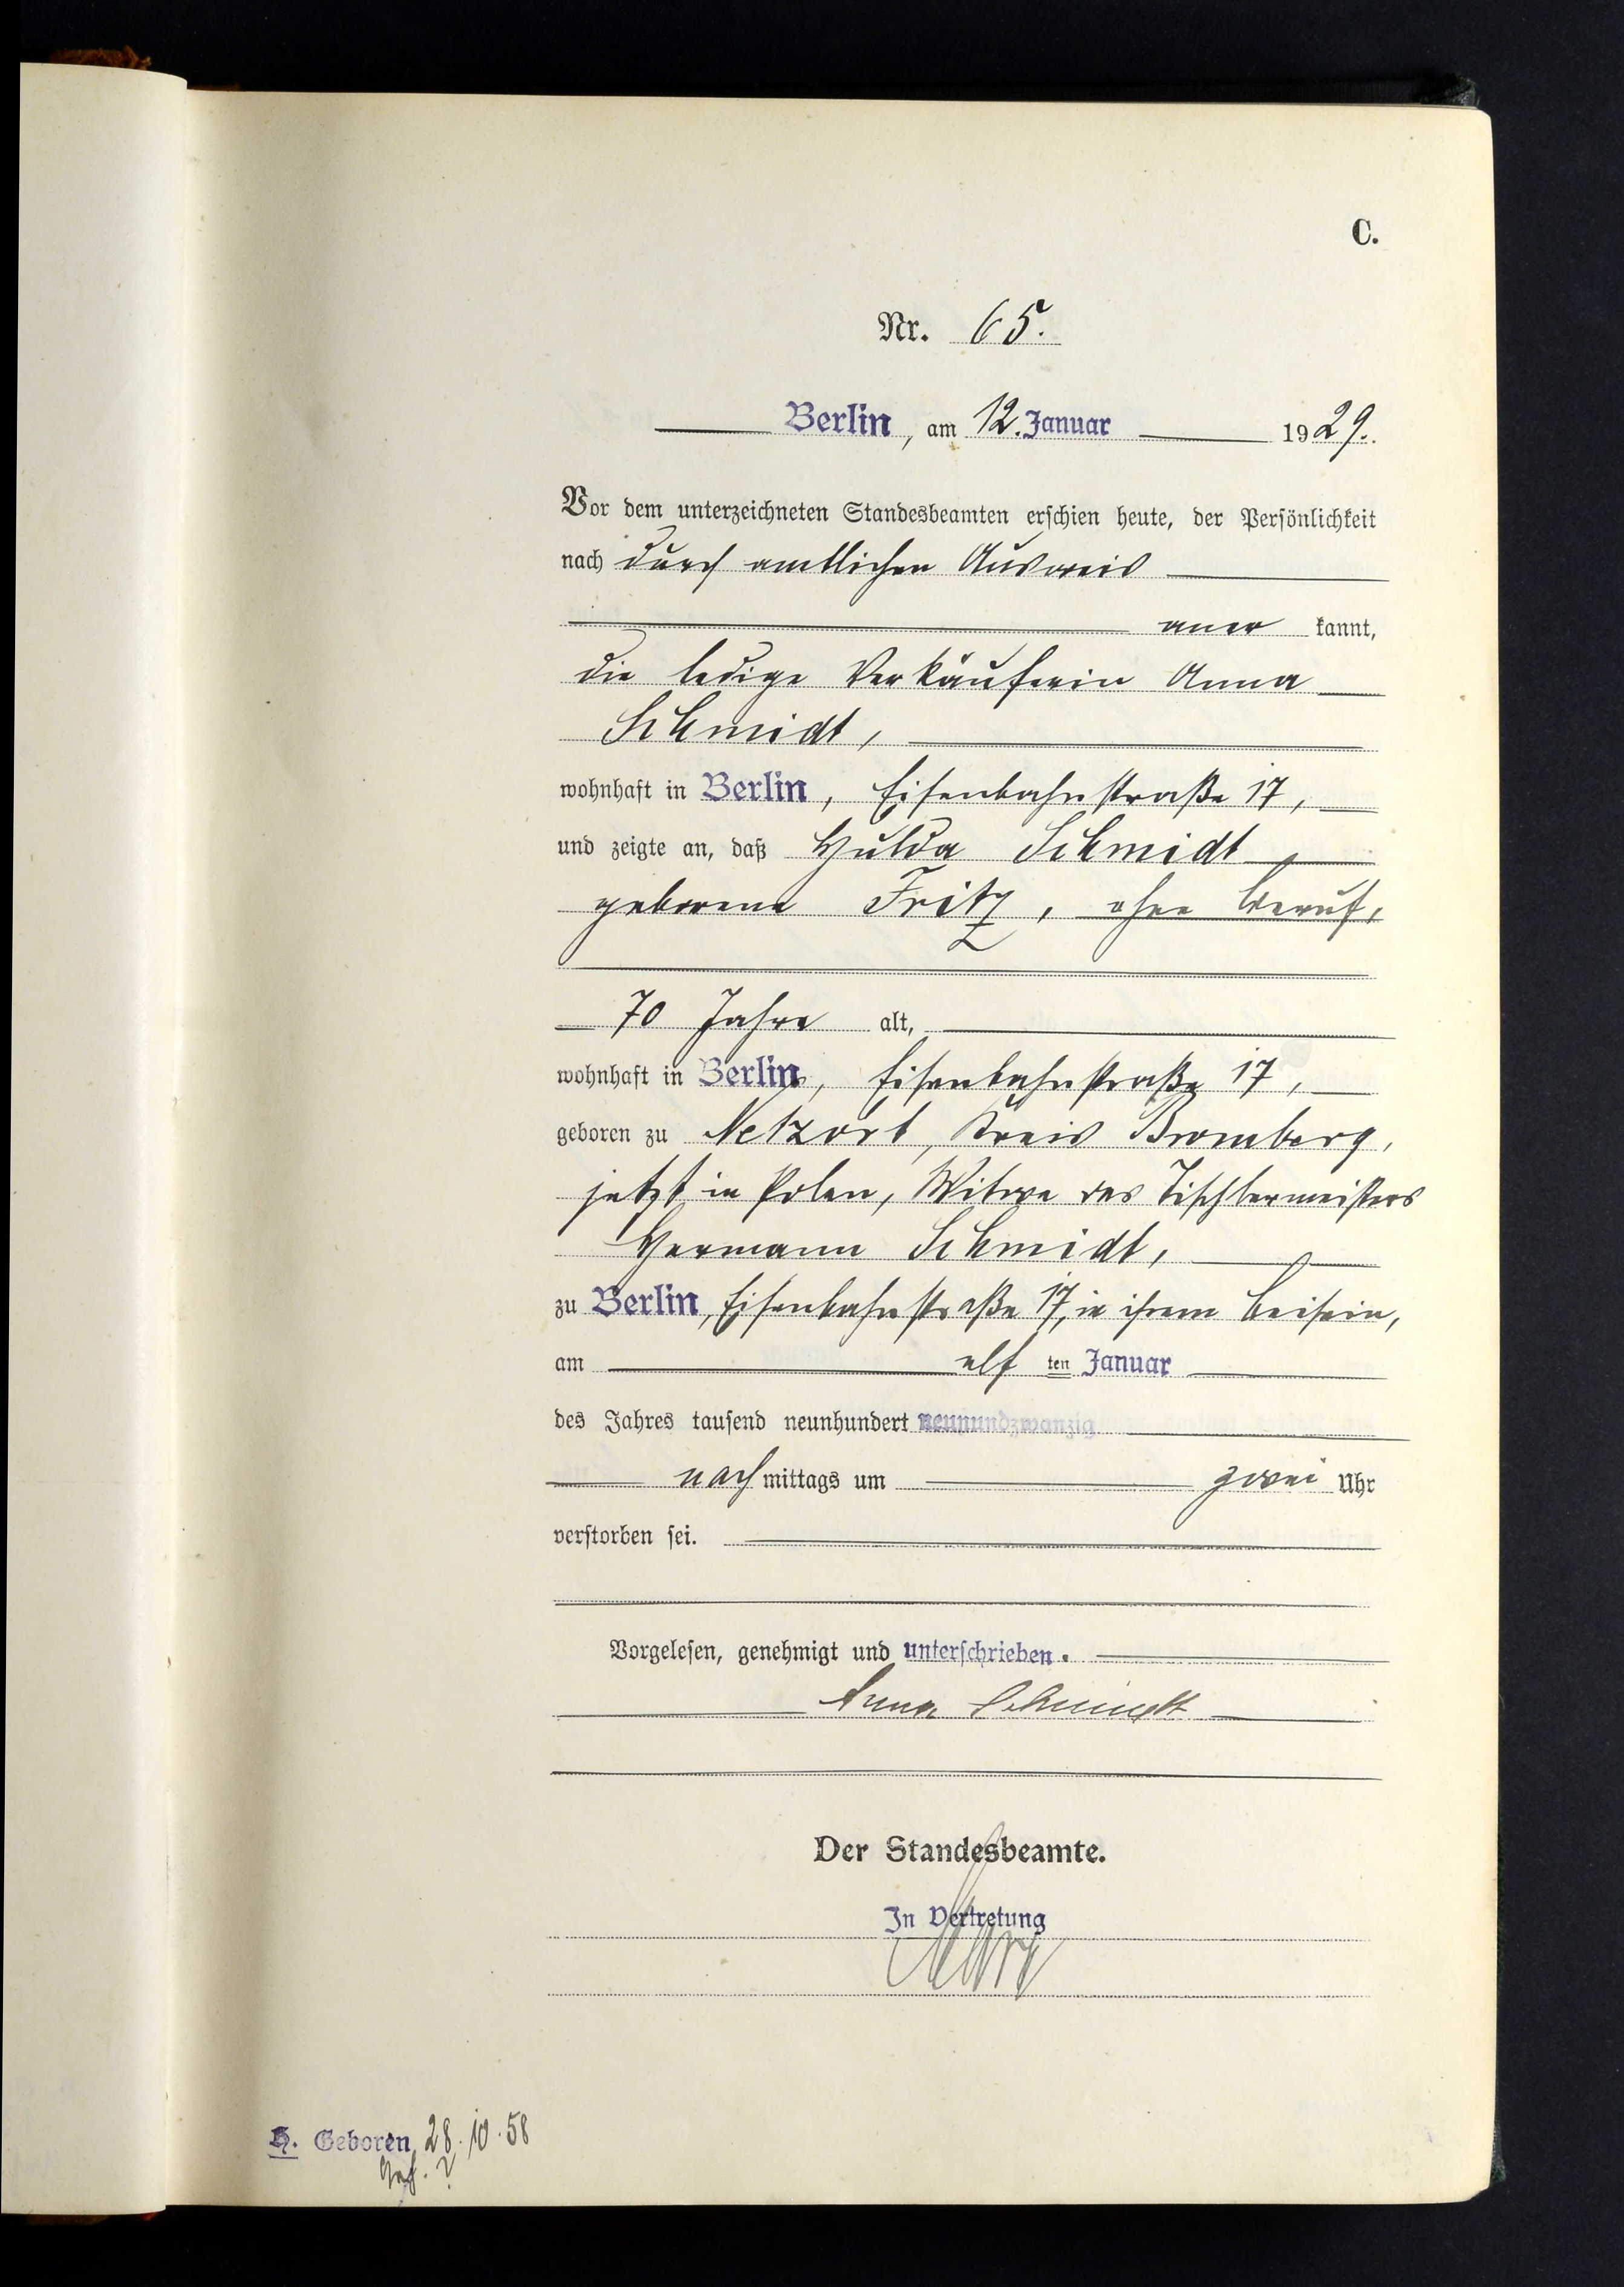 C.
Nr. 65.
Berlin, am 12. Januar 1929.
Vor dem unterzeichneten Standesbeamten erschien heute, der Persönlichkeit
nach durch amtlichen Ausweis
aner kannt,
die ledige Verkäuferin Anna
Schmidt,
wohnhaft in Berlin, Eisenbahnstraße 17,
und zeigte an, daß Hulda Schmidt
geborene Fritz, ohne Beruf,
70 Jahre alt,
wohnhaft in Berlin, Eisenbahnstraße 17,
geboren zu Netzort, Kreis Bromberg,
jetzt in Polen, Witwe des Tischlermeisters
Hermann Schmidt,
zu Berlin, Eisenbahnstraße 17, in ihrem Beisein,
am elf ten Januar
des Jahres tausend neunhundert neunundzwanzig
nachmittags um zwei Uhr
verstorben sei.
Vorgelesen, genehmigt und unterschrieben.
Anna Schmidt
Der Standesbeamte.
In Vertretung
H. Geboren 28.10.58